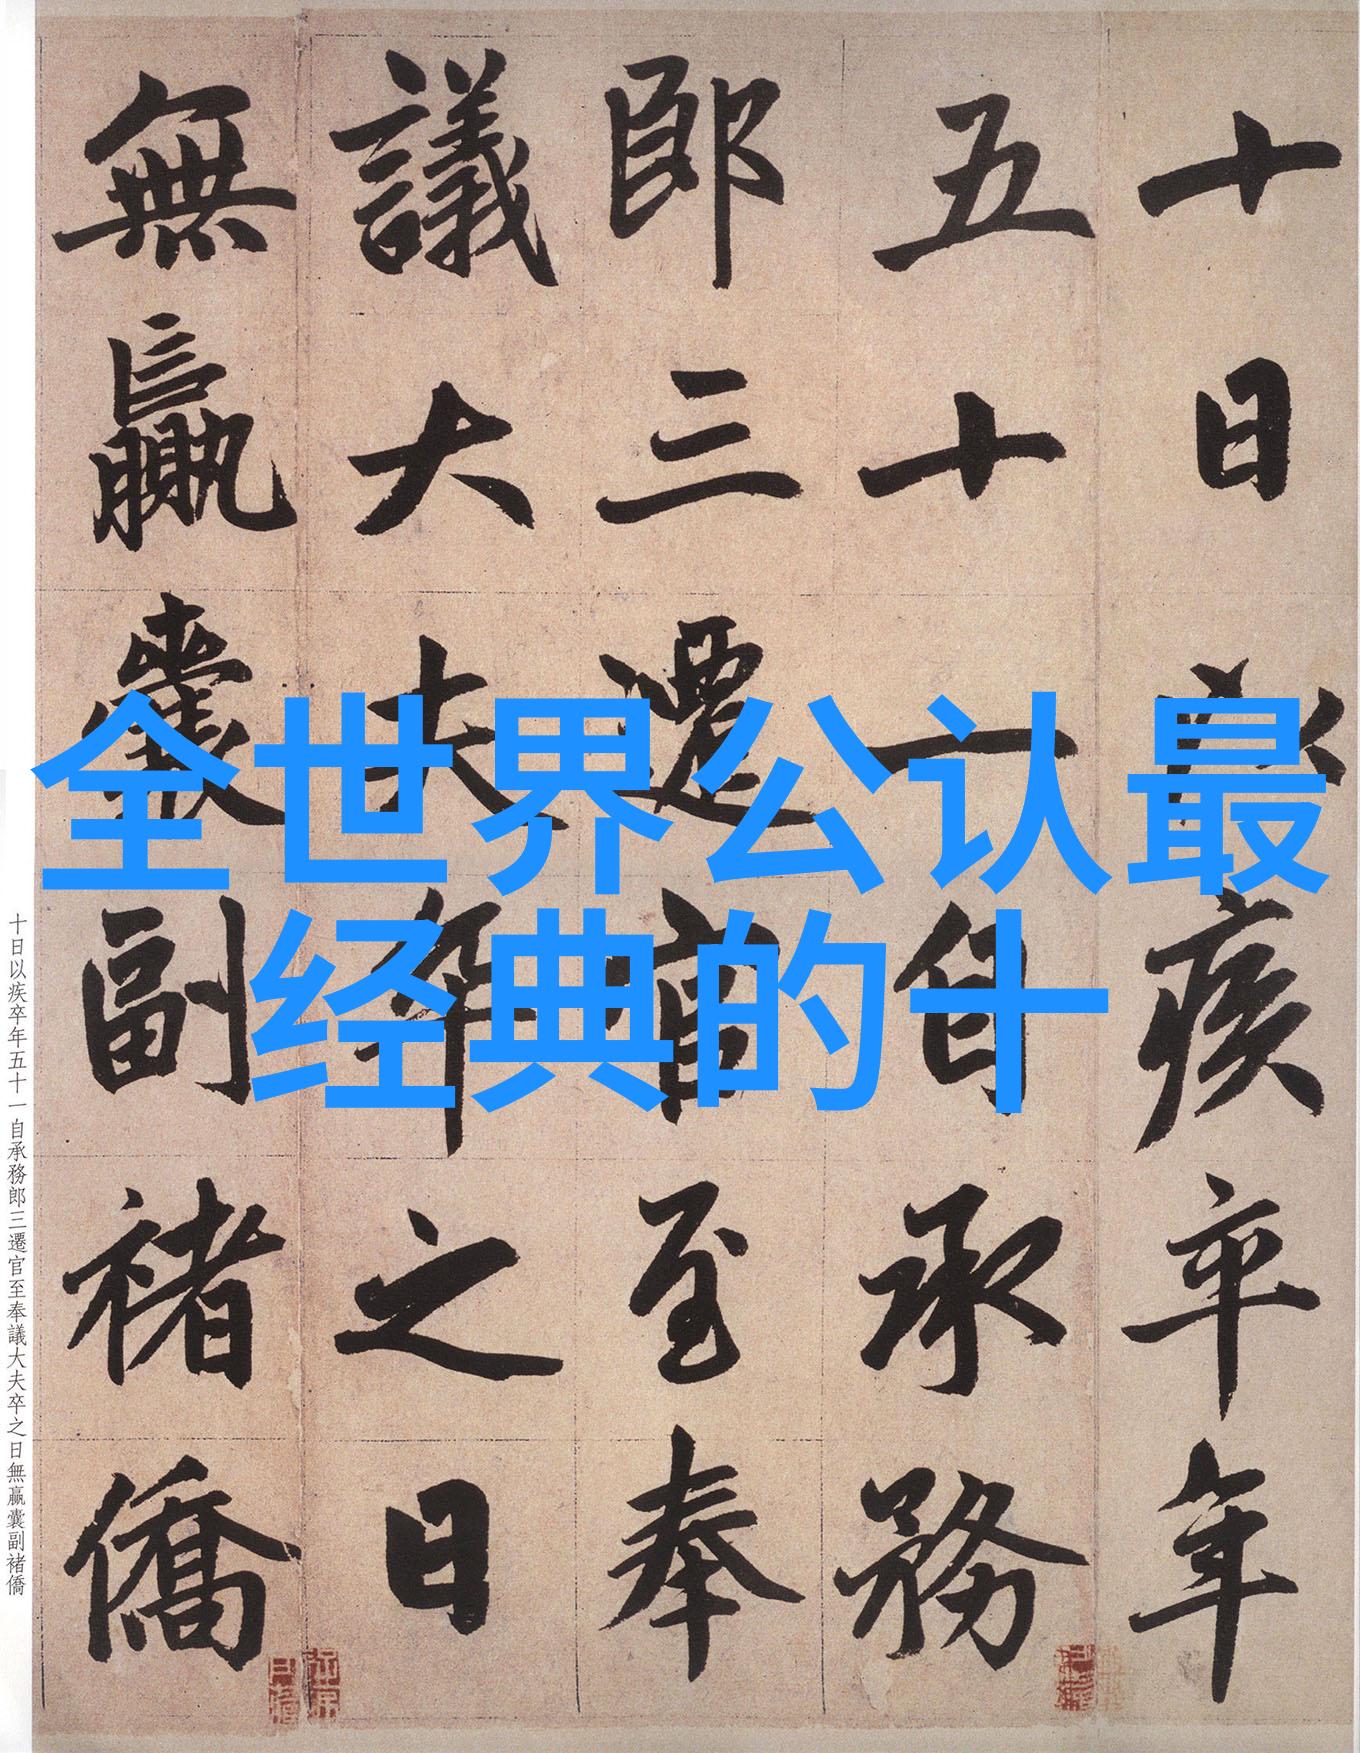 十日以疾卒年
五十一自承務
郎三遷官至奉
議大夫卒之日
無贏囊副褚僑
全世界公认最
经典的十
十日以疾卒年五十一自承務郎三遷官至奉議大夫卒之日無贏囊副褚僑